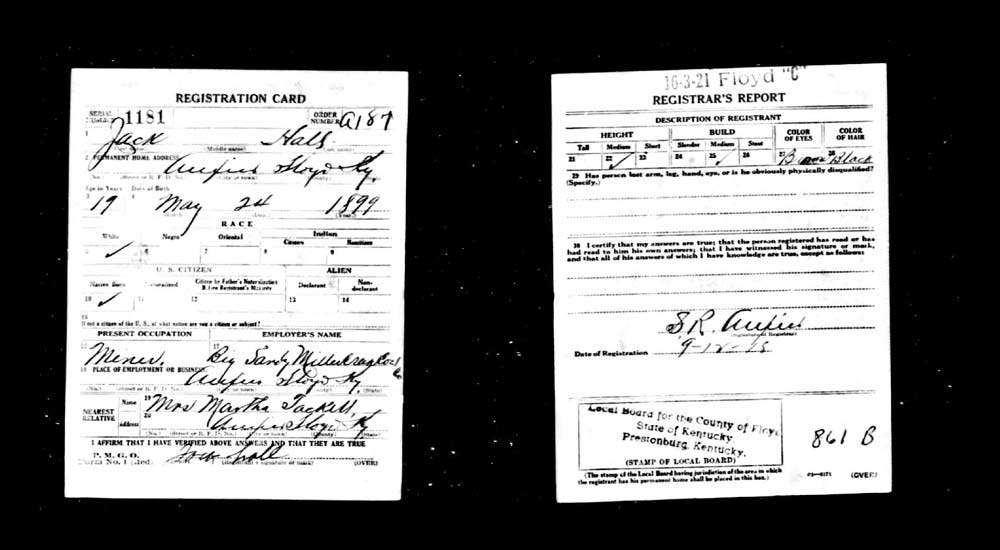 REGISTRATION CARD
SERIAL NUMBER 1181 ORDER NUMBER A187
1 Jack Hall
(First name) (Middle name) (Last name)
2 PERMANENT HOME ADDRESS
Floyd Ky.
(No.) (Street or R. F. D. No.) (City or town) (State)
Age in Years Date of Birth
3 19 4 May 24 1899
(Month.) (Day.) (Year.)
RACE
White Negro Oriental Indian
Citizen Noncitizen
5 ✓ 6 7 8 9
U. S. CITIZEN ALIEN
Native Born Naturalized Citizen by Father's Naturalization Before Registrant's Majority Declarant Non-declarant
10 ✓ 11 12 13 14
15
If not a citizen of the U. S., of what nation are you a citizen or subject?
PRESENT OCCUPATION EMPLOYER'S NAME
16 Miner. 17 Big Sandy Millers Coal
18 PLACE OF EMPLOYMENT OR BUSINESS
Floyd Ky.
(No.) (Street or R. F. D. No.) (City or town) (County) (State)
NEAREST RELATIVE Name 19 Mrs Martha Tackett,
Address 20 Floyd Ky
(No.) (Street or R. F. D. No.) (City or town) (County) (State)
I AFFIRM THAT I HAVE VERIFIED ABOVE ANSWERS AND THAT THEY ARE TRUE
P. M. G. O.
Form No. 1 (Red) Jack Hall
(Registrant's signature or mark) (OVER)
16-3-21 Floyd "C"
REGISTRAR'S REPORT
DESCRIPTION OF REGISTRANT
HEIGHT BUILD COLOR OF EYES COLOR OF HAIR
Tall Medium Short Slender Medium Stout
21 22 ✓ 23 24 25 ✓ 26 27 28 Black
29 Has person lost arm, leg, hand, eye, or is he obviously physically disqualified?
(Specify.)
30 I certify that my answers are true; that the person registered has read or has
had read to him his own answers; that I have witnessed his signature or mark,
and that all of his answers of which I have knowledge are true, except as follows:
S R
(Signature of Registrar)
Date of Registration 9-12-18
Local Board for the County of Floyd
State of Kentucky
Prestonburg, Kentucky.
(STAMP OF LOCAL BOARD)
861 B
(The stamp of the Local Board having jurisdiction of the area in which
the registrant has his permanent home shall be placed in this box.)
03—6171 (OVER)